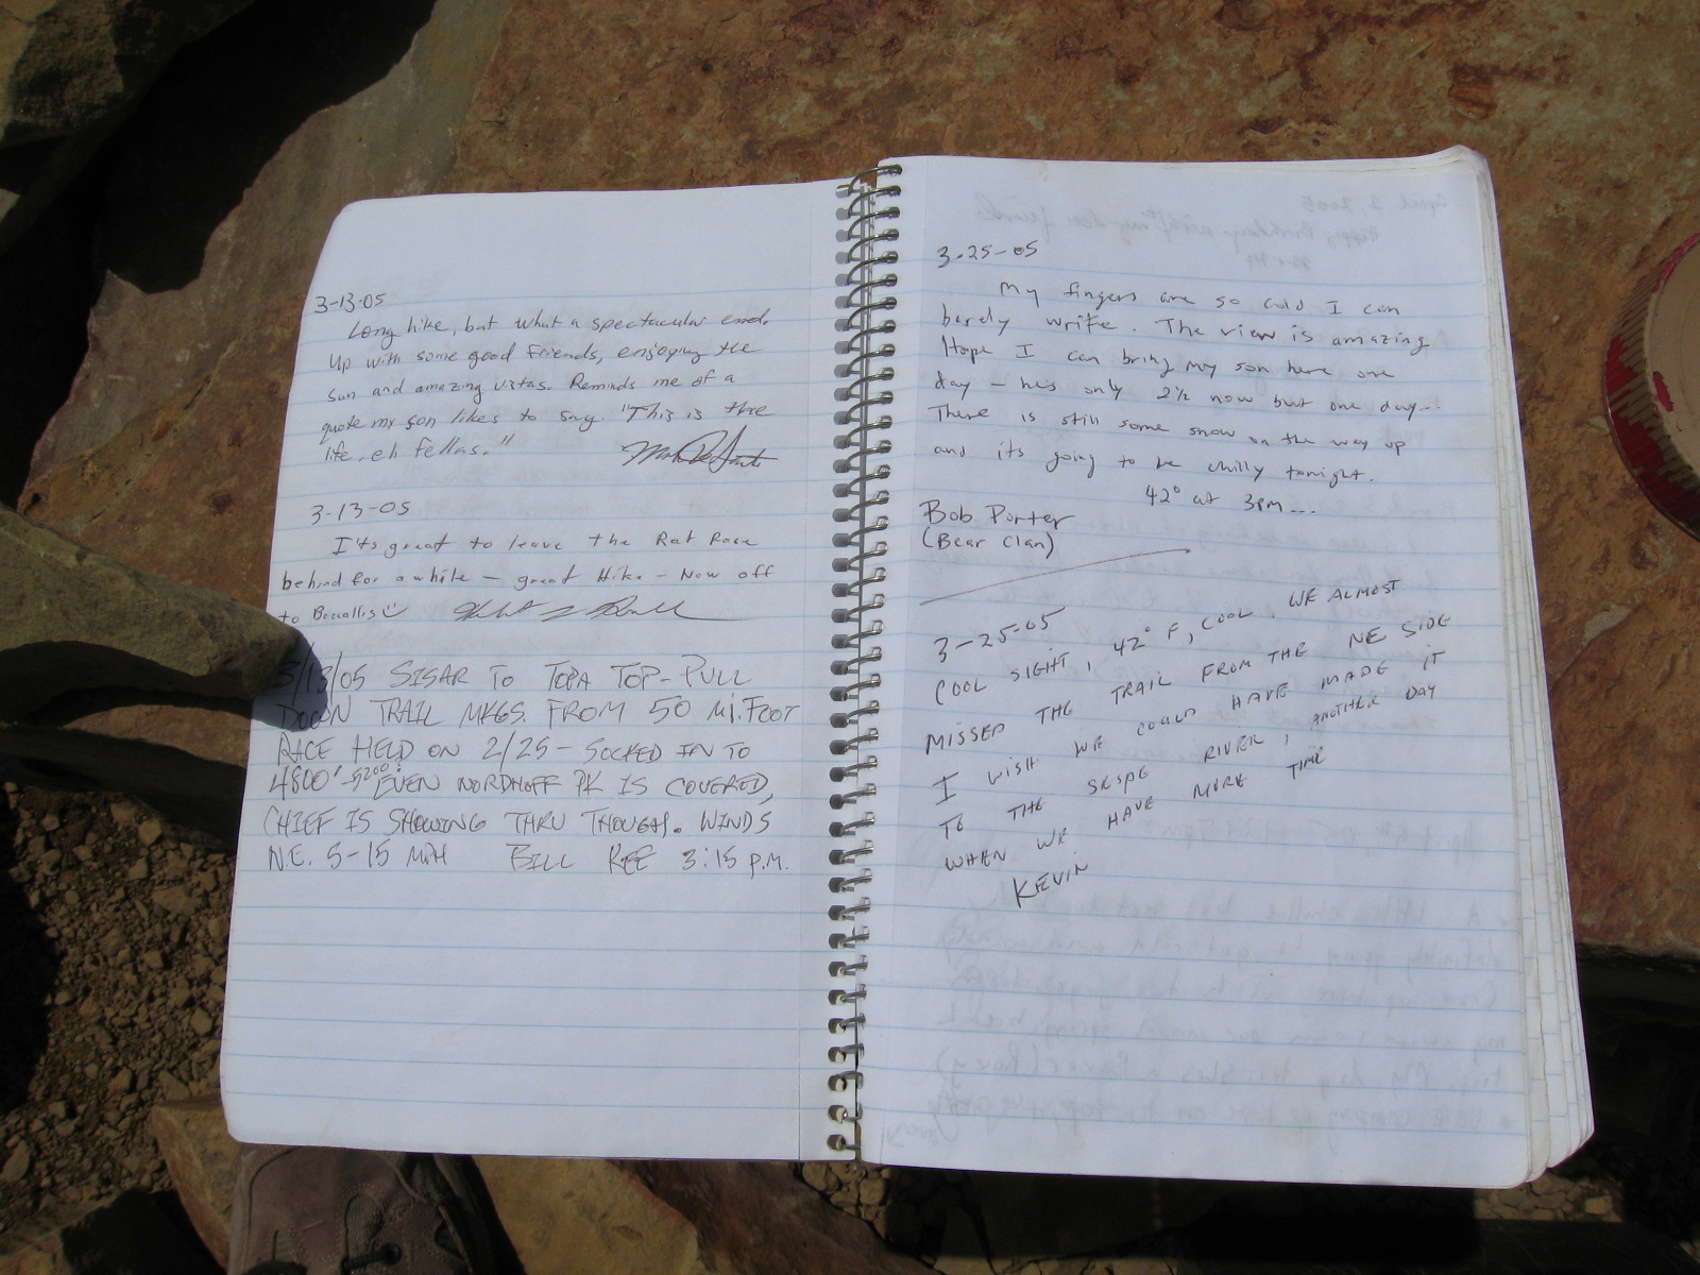 3-13-05
Long hike, but what a spectacular end.
Up with some good friends, enjoying the
sun and amazing vistas. Reminds me of a
quote my son likes to say. "This is the
life, eh fellas."
3-13-05
I'ts great to leave the Rat Race
behind for awhile – great Hike – Now off
to
3/13/05 SISAR TO TOPA TOP-PULL
DOWN TRAIL MKGS. FROM 50 Mi. FOOT
RACE HELD ON 2/25 – SOCKED IN TO
4800'-5200'. EVEN NORDHOFF PK IS COVERED,
CHIEF IS SHOWING THRU THOUGH. WINDS
N.E. 5-15 MPH BILL KEE 3:15 P.M.
3.25-05
My fingers are so cold I can
barely write. The view is amazing
Hope I can bring my son here one
day – he's only 2½ now but one day...
There is still some snow on the way up
and its going to be chilly tonight.
42° at 3pm...
Bob Porter
(Bear Clan)
3-25-05
COOL SIGHT, 42° F, COOL. WE ALMOST
MISSED THE TRAIL FROM THE NE SIDE
I WISH WE COULD HAVE MADE IT
TO THE SESPE RIVER, ANOTHER DAY
WHEN WE HAVE MORE TIME
KEVIN